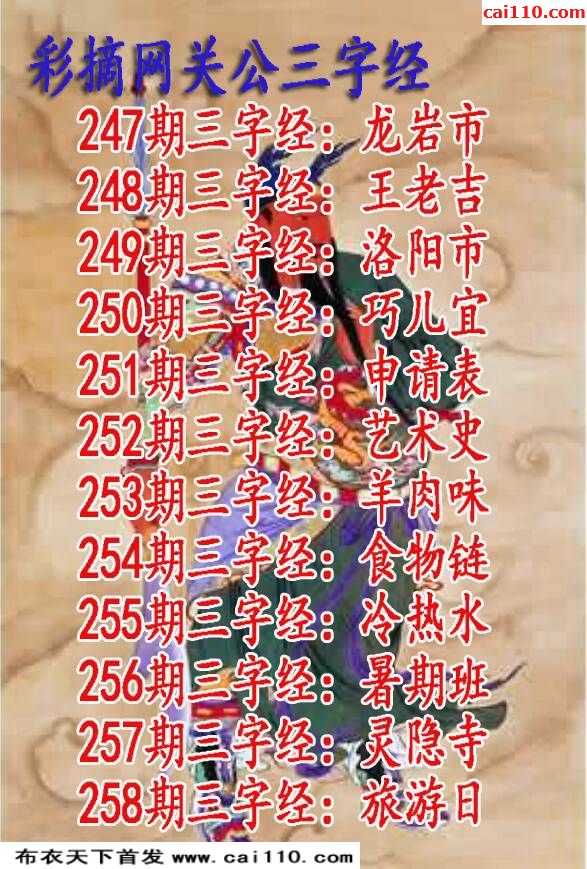 cai110.com
彩摘网关公三字经
247期三字经：龙岩市
248期三字经：王老吉
249期三字经：洛阳市
250期三字经：巧儿宜
251期三字经：申请表
252期三字经：艺术史
253期三字经：羊肉味
254期三字经：食物链
255期三字经：冷热水
256期三字经：暑期班
257期三字经：灵隐寺
258期三字经：旅游日
布衣天下首发 www.cai110.com